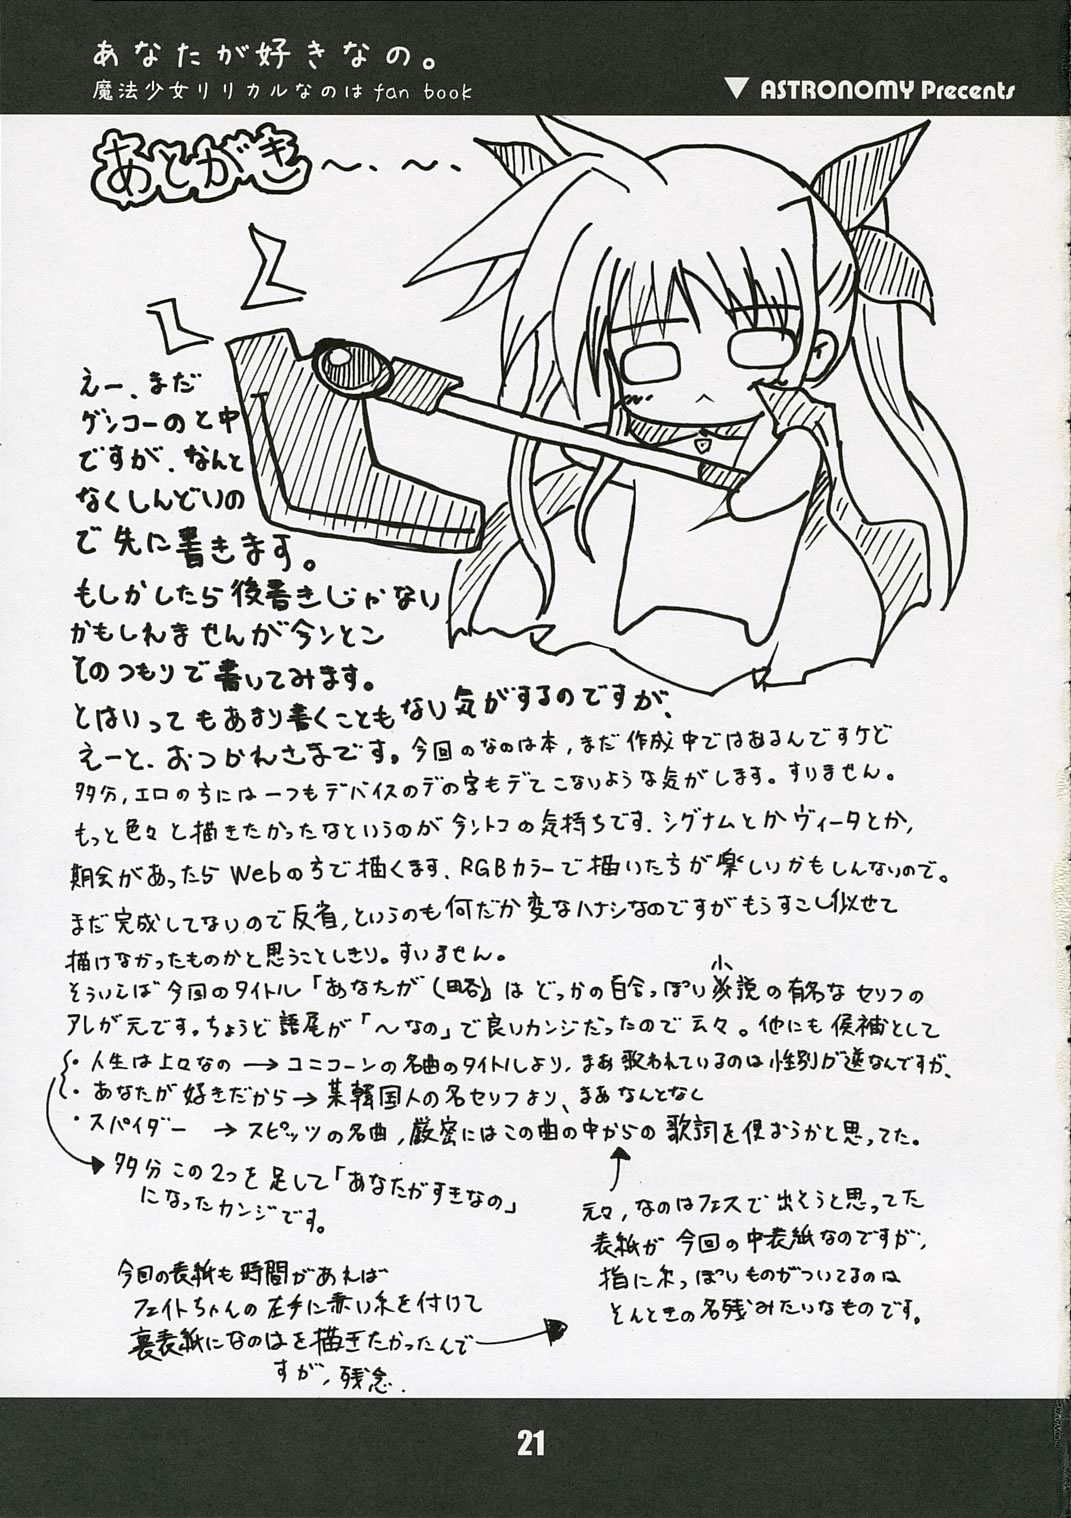 あなたが好きなの。
魔法少女リリカルなのは fan book
▼ ASTRONOMY Precents
あとがき～、～、
えー、まだ
ゲンコーのと中
ですが、なんと
なくしんどいの
で先に書きます。
もしかしたら後書きじゃない
かもしれませんが今ンとこ
そのつもりで書いてみます。
とはいってもあまり書くこともない気がするのですが、
えーと、おつかれさまです。今回のなのは本,まだ作成中ではあるんですケど
多分,エロのちには一つもデバイスのデの字もデてこないような気がします。すいません。
もっと色々と描きたかったなというのが今ントコの気持ちです、シグナムとかヴィータとか,
期会があったらWebの方で描くます、RGBカラーで描いた方が楽しいかもしんないので。
まだ完成してないので反省,というのも何だか変なハナシなのですがもうすこし似せて
描けなかったものかと思うことしきり。すいません。
そういえば今回のタイトル「あなたが(略)」はどっかの百合っぽい小説の有名なセリフの
アレが元です。ちょうど語尾が「～なの」で良いカンジだったので云々。他にも候補として
・人生は上々なの → ユニコーンの名曲のタイトルより,まあ歌われているのは性別が逆なんですが、
・あなたが好きだから→某韓国人の名セリフより、まあなんとなく
・スパイダー → スピッツの名曲,厳密にはこの曲の中からの歌詞を使おうかと思ってた。
多分この2つを足して「あなたがすきなの」
になったカンジです。
元々,なのはフェスで出そうと思ってた
表紙が今回の中表紙なのですが,
指に糸っぽいものがついてるのは
そんときの名残みたいなものです。
今回の表紙も時間があれば
フェイトちゃんの左手に赤い糸を付けて
裏表紙になのはを描きたかったんで
すが,残念.
21